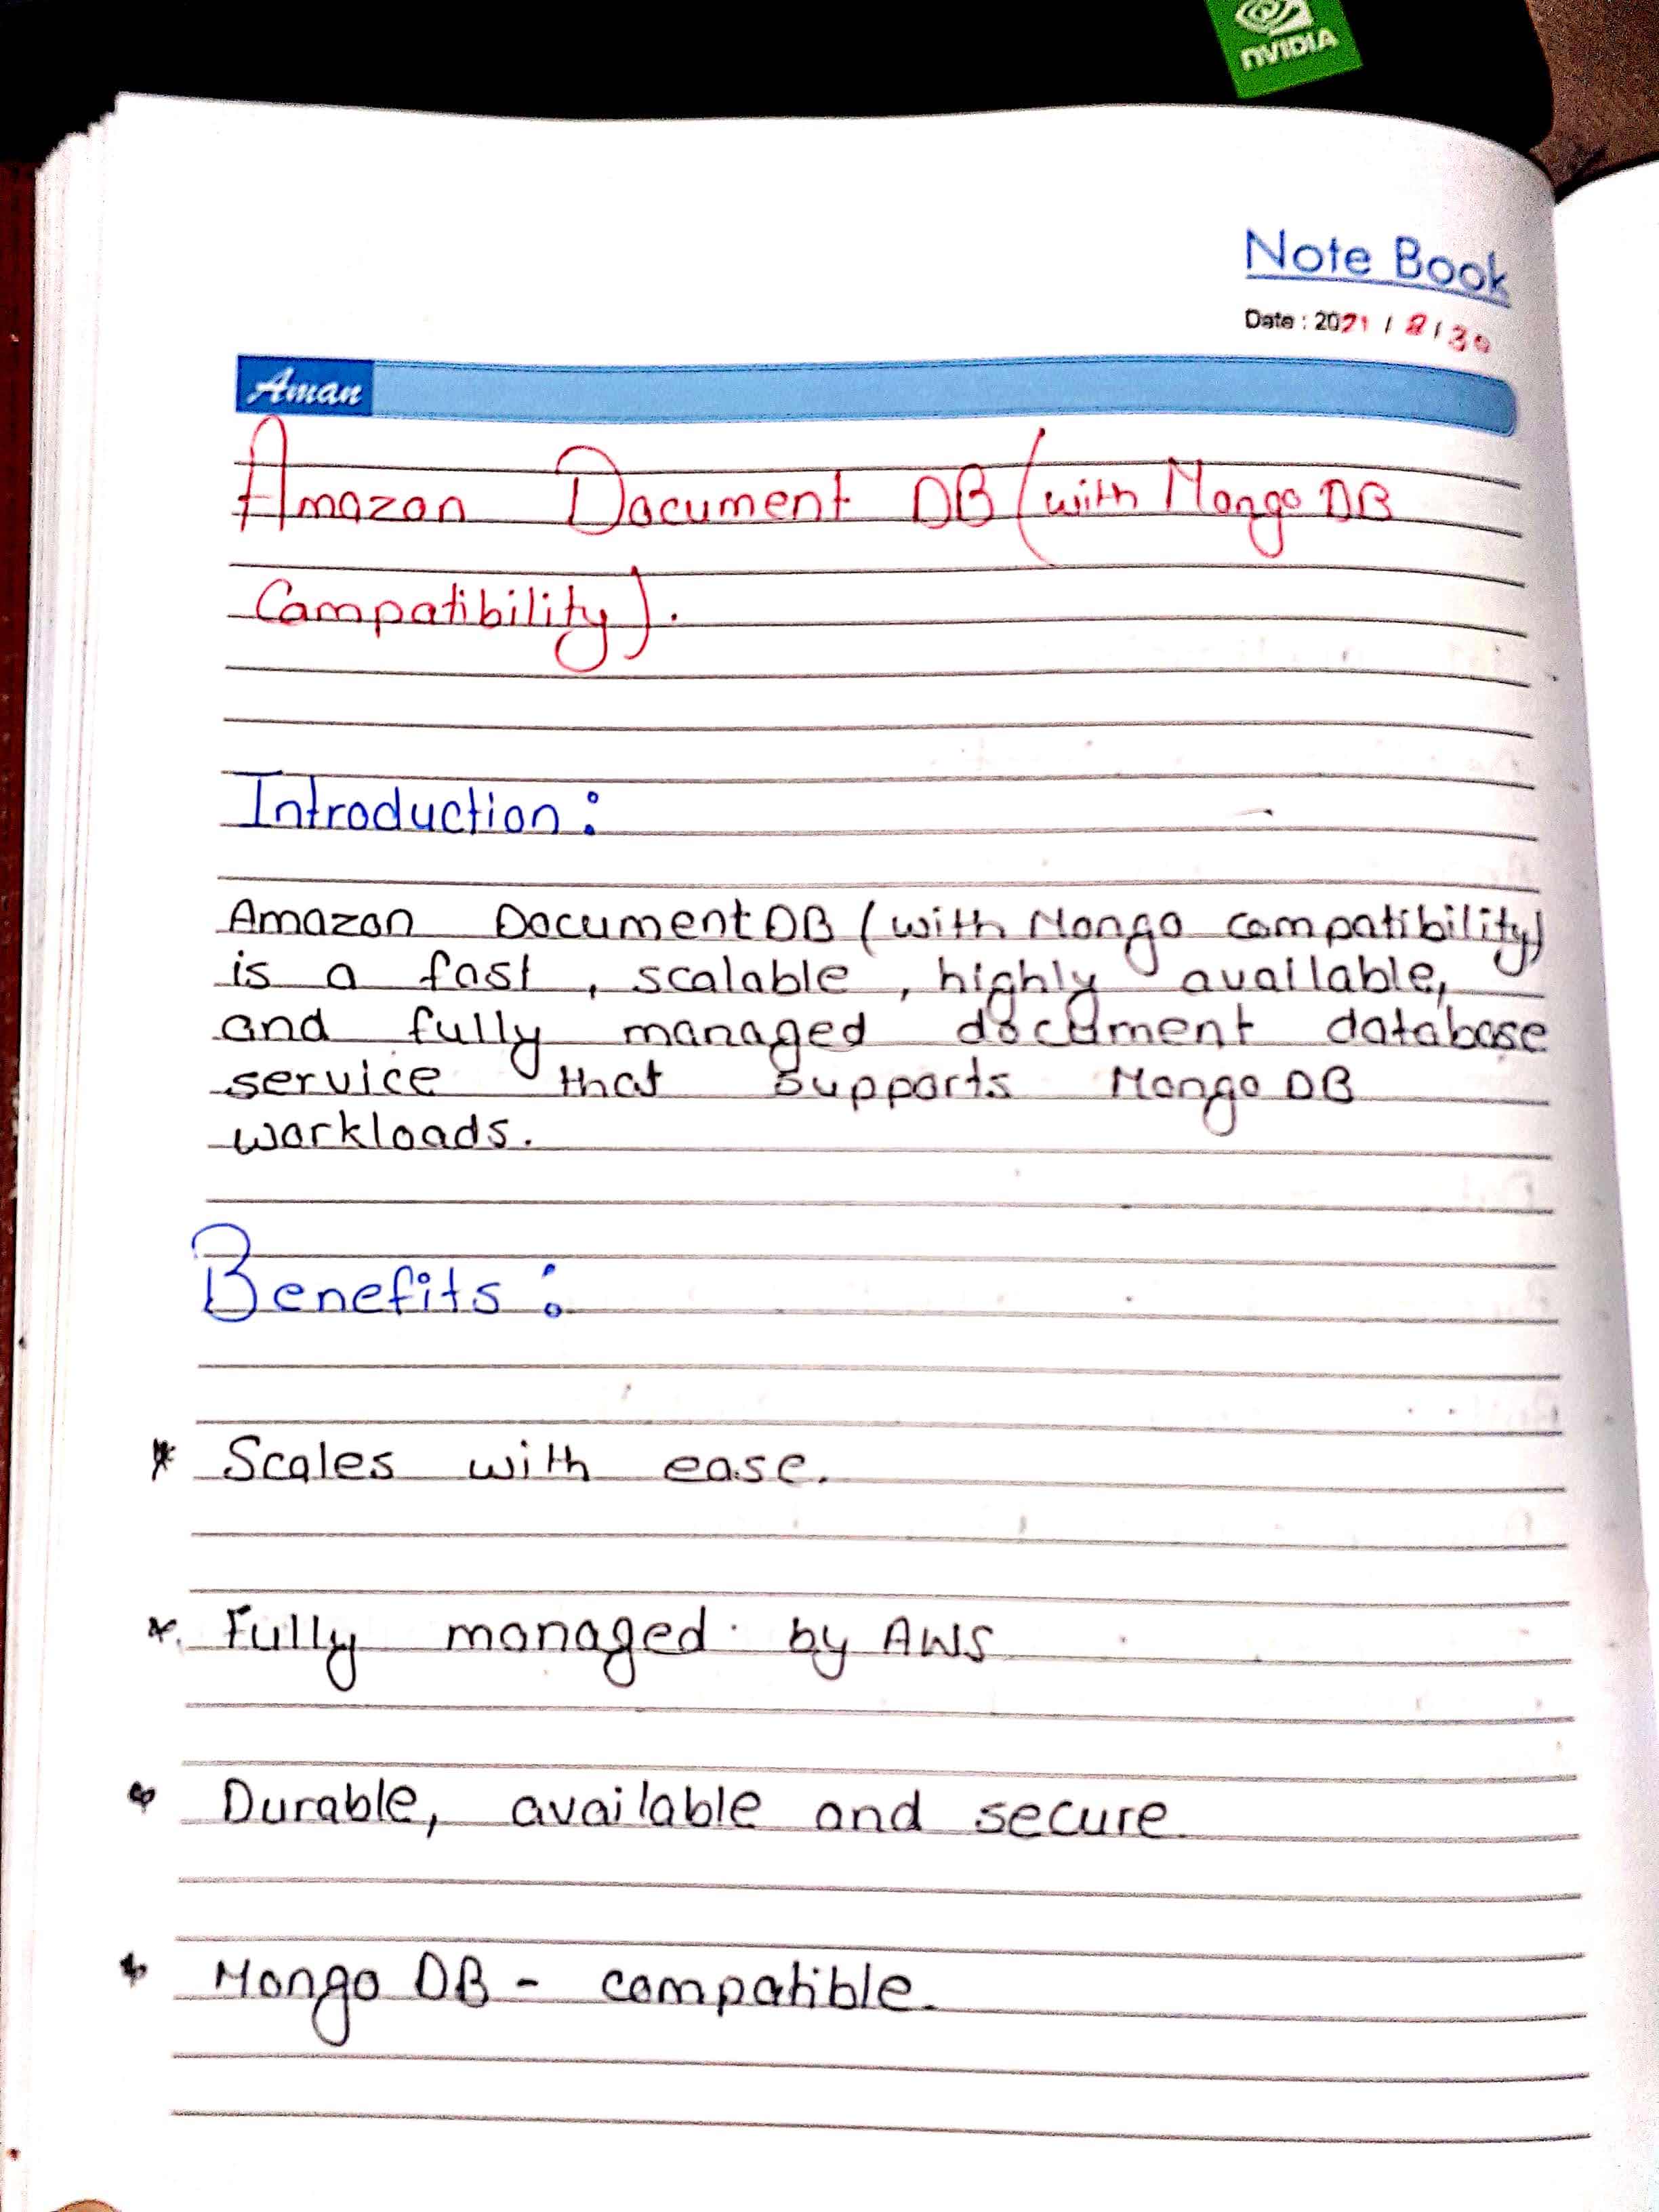 nVIDIA
Note Book
Date : 2021 / 8 / 30
Aman
Amazon Document DB (with Mongo DB
Compatibility).
Introduction :
Amazon DocumentDB (with Mongo compatibility)
is a fast, scalable, highly available,
and fully managed document database
service that supports Mongo DB
workloads.
Benefits :
* Scales with ease.
* Fully managed by AWS
* Durable, available and secure
* Mongo DB - compatible.